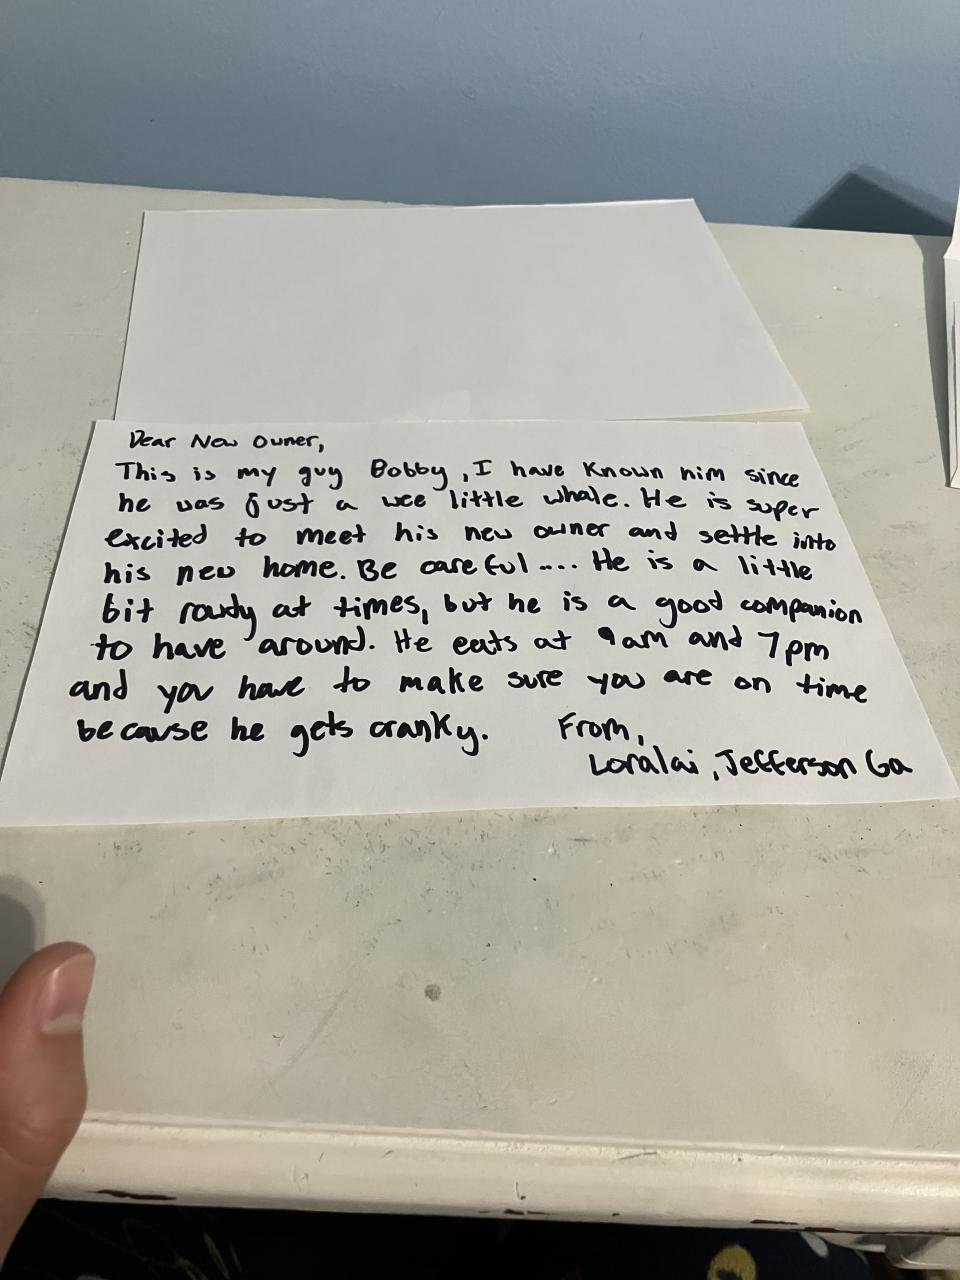 Dear New Owner,
This is my guy Bobby, I have known him since
he was just a wee little whale. He is super
excited to meet his new owner and settle into
his new home. Be careful.... He is a little
bit rowdy at times, but he is a good companion
to have around. He eats at 9am and 7pm
and you have to make sure you are on time
because he gets cranky. From,
Loralai, Jefferson Ga